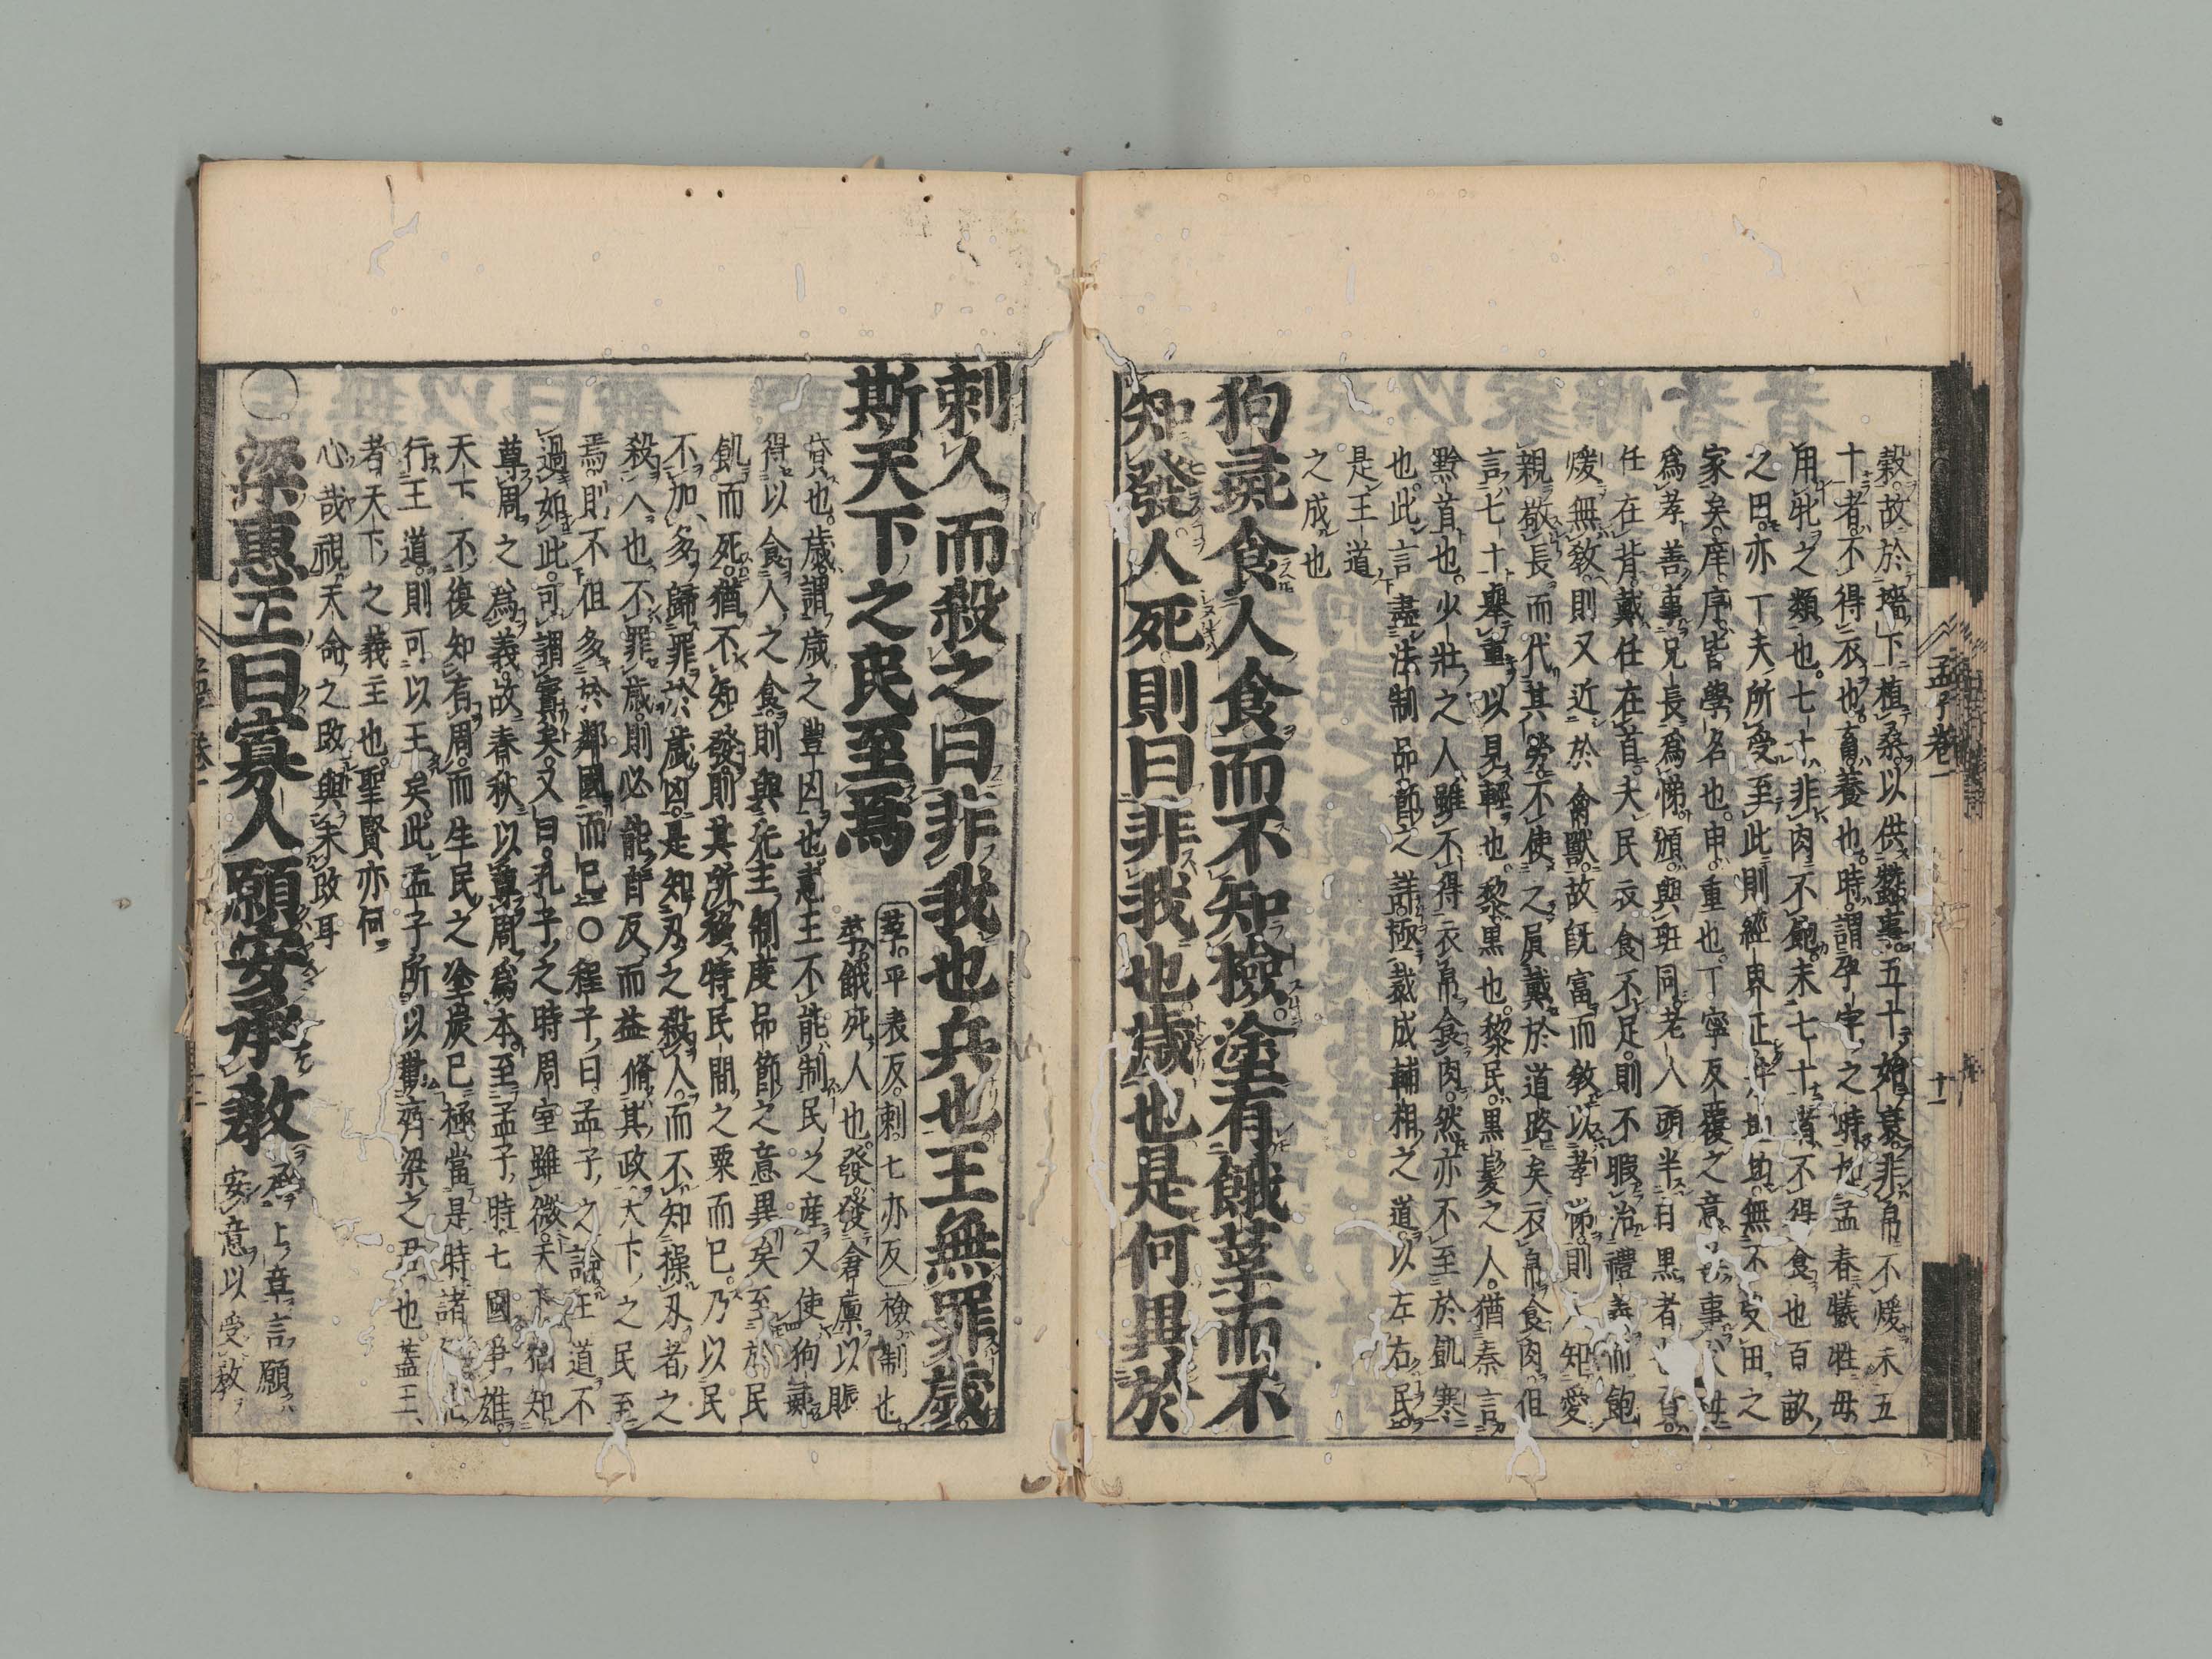 穀故於墻下植桑以供蠶事五十始衰非帛不煖未五
十者不得衣也畜養也時謂孕字之時如孟春犧牲毋
用牝之類也七十非肉不飽未七十者不得食也百畝
之田亦一夫所受至此則經界正井地均無不受田之
家矣庠序皆學名也申重也丁寧反覆之意善事父母
爲孝善事兄長爲悌頒與班同老人頭半白黑者也負
任在背戴任在首夫民衣食不足則不暇治禮義而飽
煖無敎則又近於禽獸故旣富而敎以孝悌則人知愛
親敬長而代其勞不使之負戴於道路矣衣帛食肉但
言七十擧重以見輕也黎黑也黎民黑髮之人猶秦言
黔首也少壯之人雖不得衣帛食肉然亦不至於飢寒
也此言盡法制品節之詳極裁成輔相之道以左右民
是王道
之成也
狗彘食人食而不知檢塗有餓莩而不
知發人死則曰非我也歲也是何異於
孟子卷一
十一
刺人而殺之曰非我也兵也王無罪歲
斯天下之民至焉
莩平表反刺七亦反
檢制也
莩餓死人也發發倉廩以賑
貸也歲謂歲之豐凶也惠王不能制民之産又使狗彘
得以食人之食則與先王制度品節之意異矣至於民
飢而死猶不知發則其所移特民間之粟而已乃以民
不加多歸罪於歲凶是知刃之殺人而不知操刃者之
殺人也不罪歲則必能自反而益脩其政天下之民至
焉則不但多於鄰國而已○程子曰孟子之論王道不
過如此可謂實矣又曰孔子之時周室雖微天下猶知
尊周之爲義故春秋以尊周爲本至孟子時七國爭雄
天下不復知有周而生民之塗炭已極當是時諸
行王道則可以王矣此孟子所以勸齊梁之君也蓋王
者天下之義主也聖賢亦何
心哉視天命之改與未改耳
○梁惠王曰寡人願安承敎
承上章言願
安意以受敎